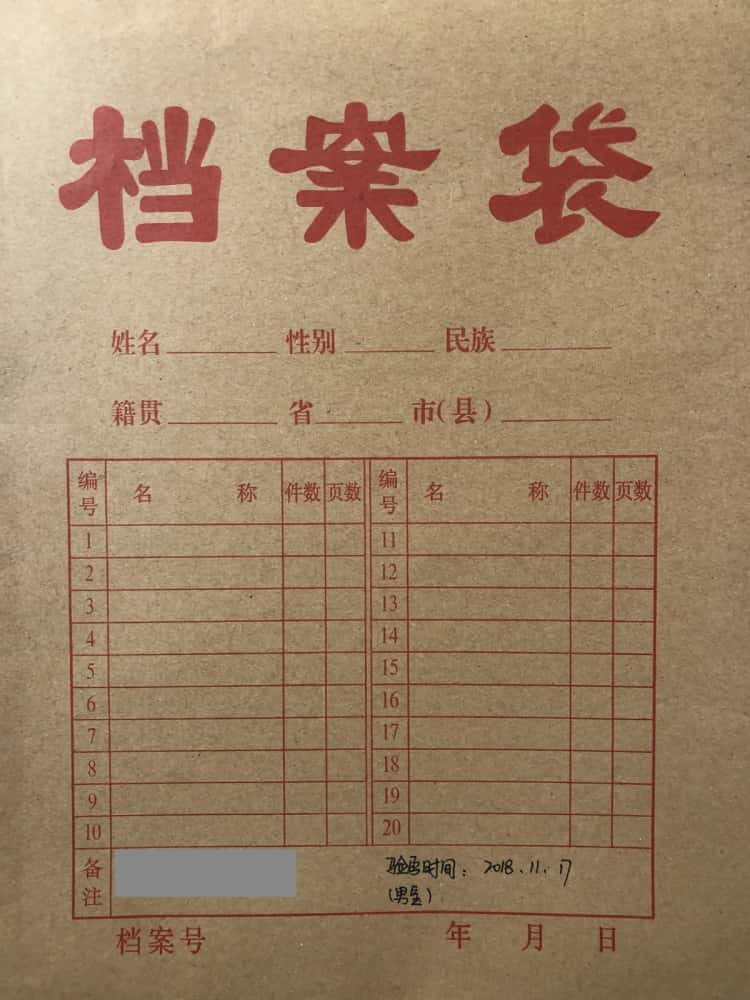 档案袋
姓名 性别 民族
籍贯 省 市(县)
编号 名称 件数 页数 编号 名称 件数 页数
1 11
2 12
3 13
4 14
5 15
6 16
7 17
8 18
9 19
10 20
备注 时间：2018.11.17
(男
档案号 年 月 日